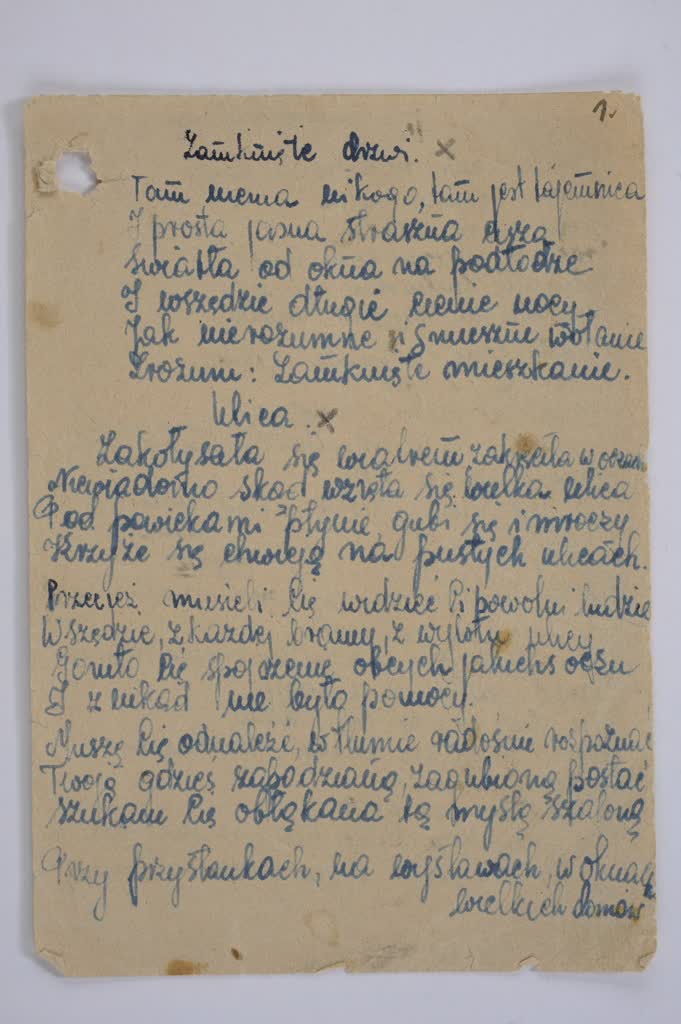 1.
Zamknięte drzwi. x
Tam niema nikogo, tam jest tajemnica
I prosta jasna straszna cisza
światła od okna na podłodze
I wszędzie długie cienie nocy.
Jak nierozumne i śmieszne wołanie
Zrozum: Zamknięte mieszkanie.
Ulica. x
Zakołysała się wiatrem zakręciła w
Niewiadomo skąd wzięła się wielka ulica
Pod powiekami płynie, gubi się i mroczy
Krzyże się chwieją na pustych ulicach.
Przecież musieli Cię widzieć Ci powolni ludzie
Wszędzie, z każdej bramy, z wylotu ulicy
Goniło Cię spojrzenie obcych jakichś oczu
I z nikąd nie było pomocy.
Muszę Cię odnaleźć, w tłumie radośnie rospoznać
Twoją gdzieś zabłodzianą, zagubioną postać
szukam Cię obłąkana tą myślą szaloną
Przy przystankach, na wystawach, w oknach
wielkich domów